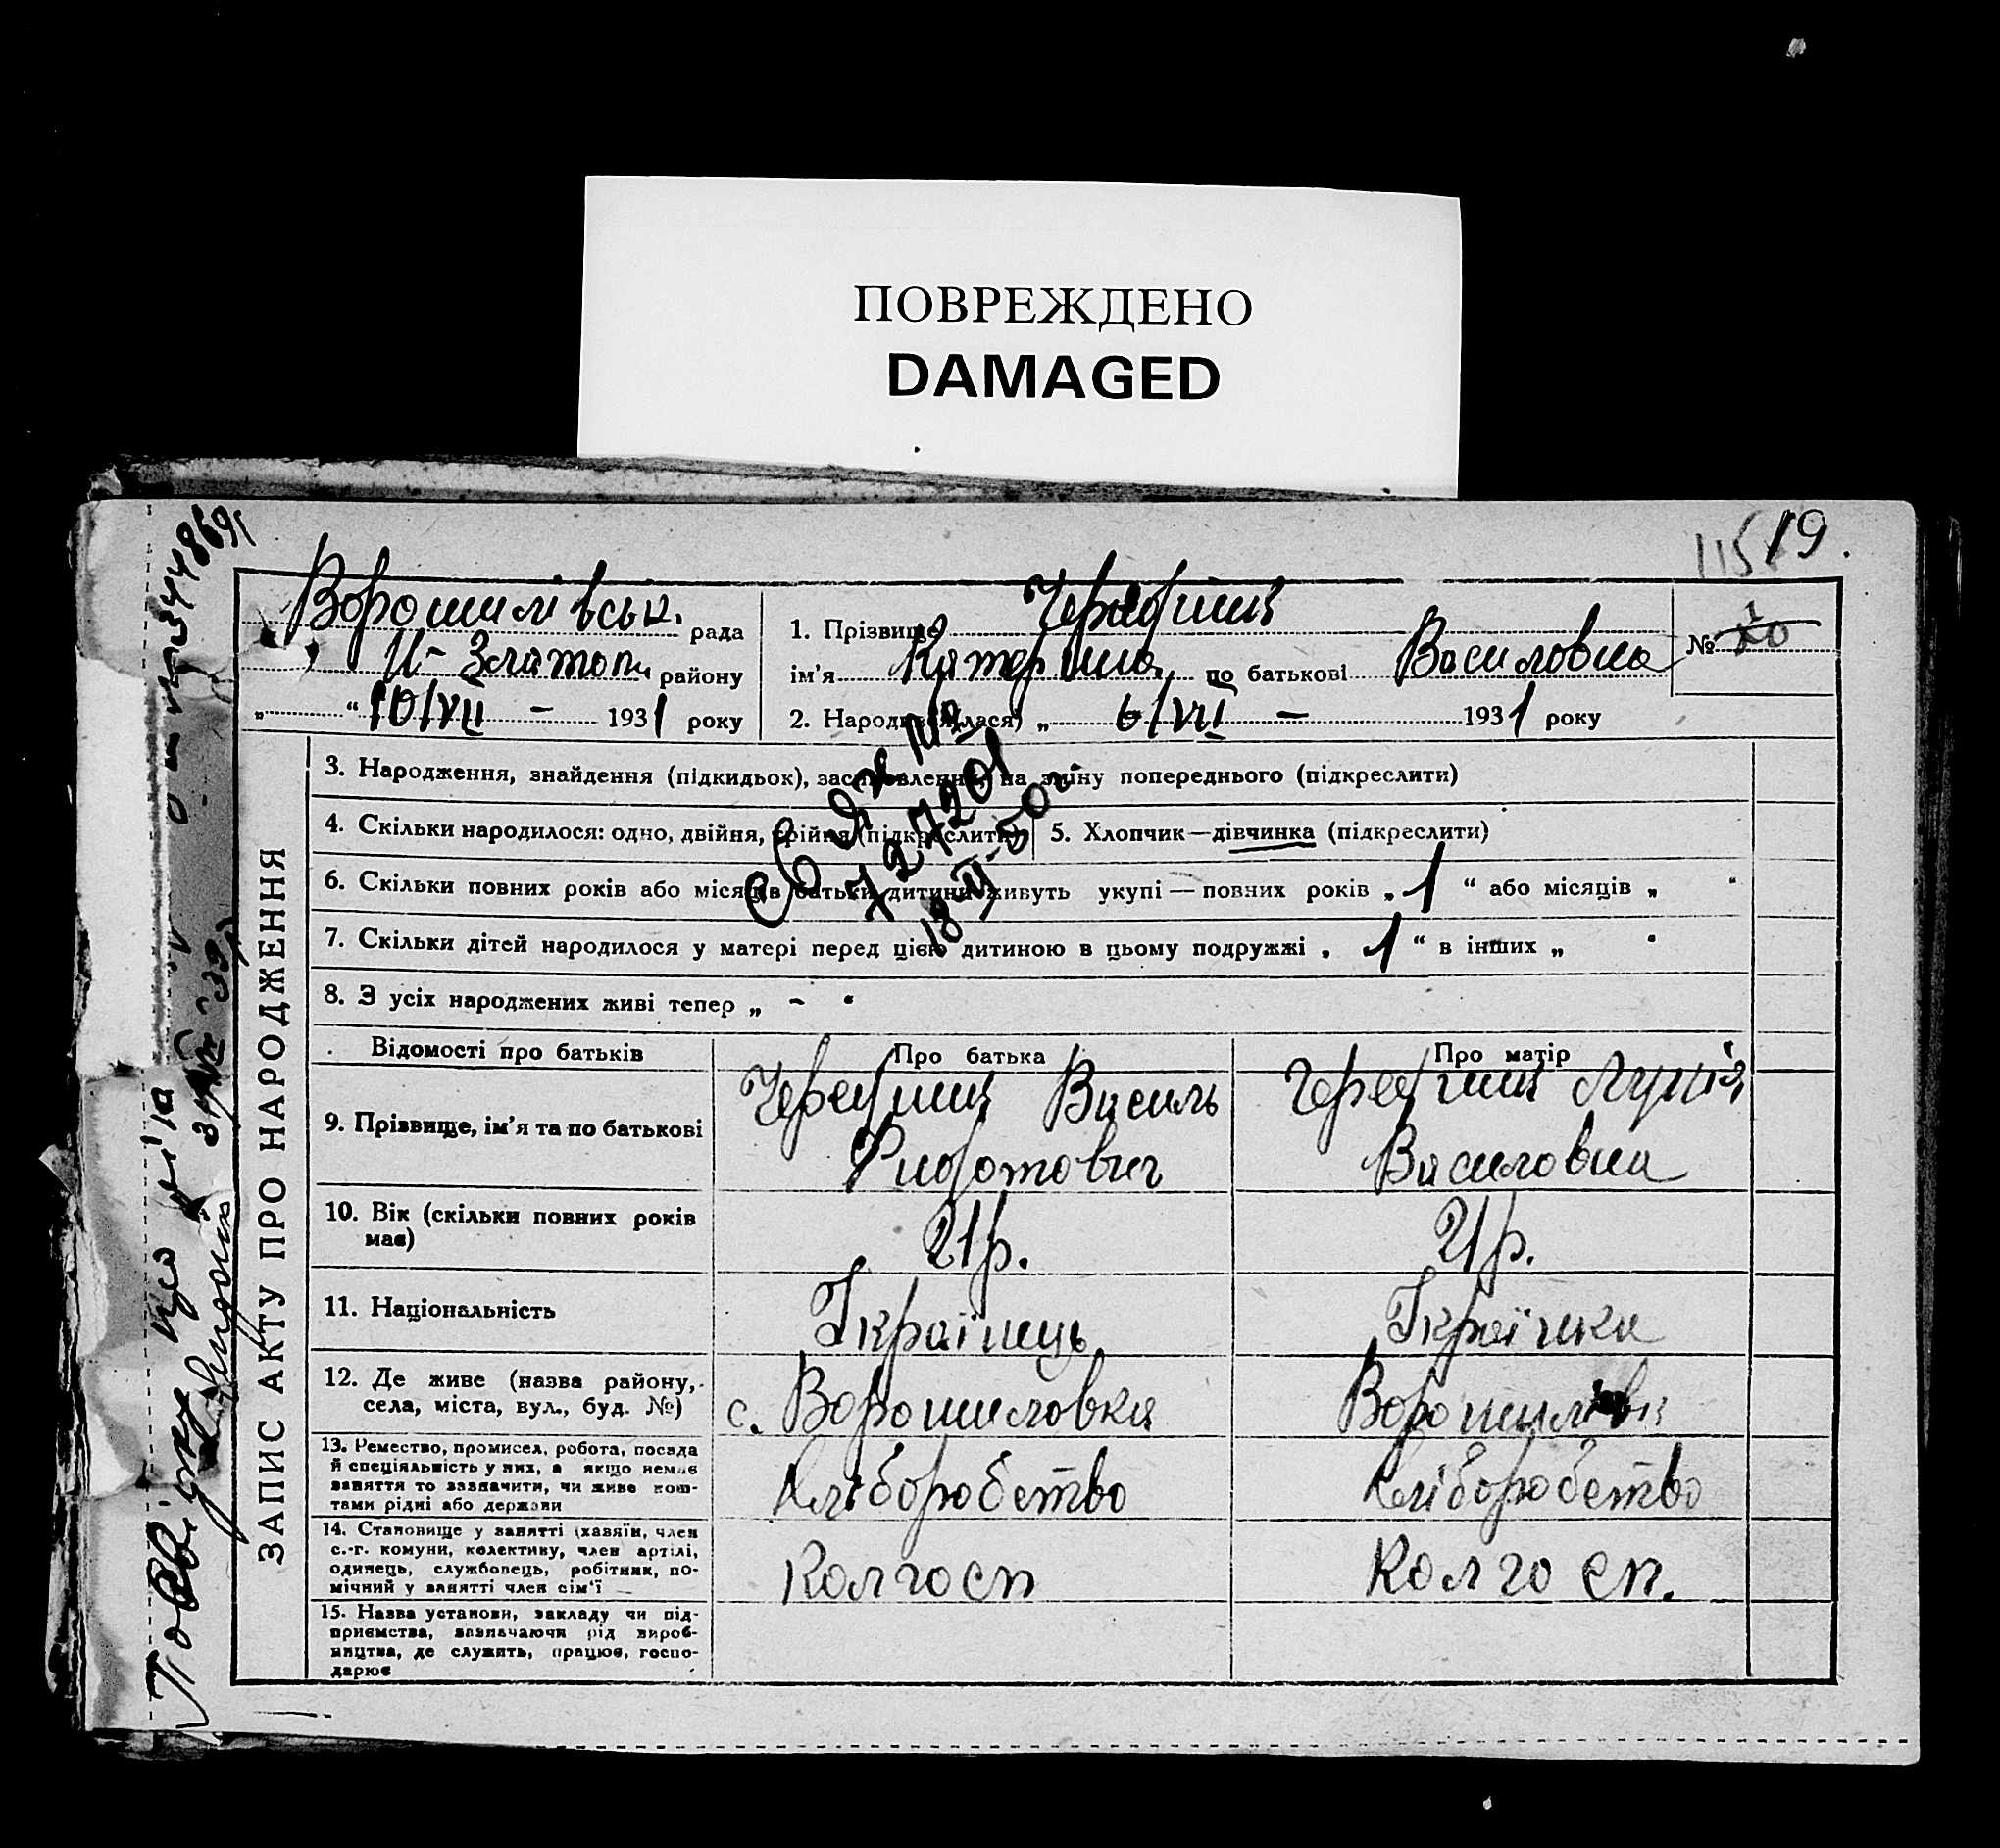 ПОВРЕЖДЕНО
DAMAGED
19.
115
Ворошилівськ. рада
Н-Златоп. району
„ “ 10/VII - 1931 року
1. Прізвище
ім'я Катерина по батькові Василовна
2. Народився(лася) „ 6/VII - 1931 року
№
ЗАПИС АКТУ ПРО НАРОДЖЕННЯ
3. Народження, знайдення (підкидьок), на зміну попереднього (підкреслити)
4. Скільки народилося: одно, двійня, трійня (підкреслити)
5. Хлопчик—дівчинка (підкреслити)
6. Скільки повних років або місяців батьки дитини живуть укупі — повних років „ 1 “ або місяців „ “
7. Скільки дітей народилося у матері перед цією дитиною в цьому подружжі „ 1 “ в інших „ “
8. З усіх народжених живі тепер „ - “
св. я № 
727201
18 -50 г.
Відомості про батьків
Про батька
Про матір
9. Прізвище, ім'я та по батькові
Василь
Василовна
10. Вік (скільки повних років
має)
21 р.
21 р.
11. Національність
Українець
Українка
12. Де живе (назва району,
села, міста, вул., буд. №)
с. Ворошиловка
13. Ремество, промисел, робота, посада
й спеціяльність у них, а якщо немає
заняття то зазначити, чи живе кош-
тами рідні або держави
Хліборобство
Хліборобство
14. Становище у занятті (хазяїн, член
с.-г. комуни, колективу, член артілі,
одинець, службовець, робітник, по-
мічний у занятті член сім'ї
Колгосп
Колгосп.
15. Назва установи, закладу чи під-
приємства, зазначаючи рід вироб-
ництва, де служить, працює, госпо-
дарює